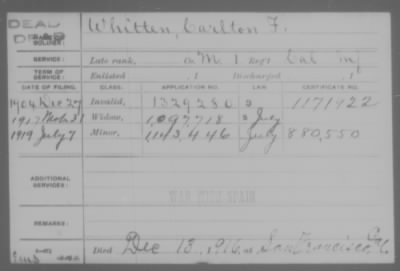 DEAD
NAME OF SOLDIER: Whitten, Carlton F.
SERVICE: Late rank, Co. M, 1 Reg't Cal Inf
TERM OF SERVICE: Enlisted , 1 Discharged , 1
DATE OF FILING. CLASS. APPLICATION NO. LAW. CERTIFICATE NO.
1904 Dec 27 Invalid, 1329280 1171922
1917 Mch 31 Widow, 1,097,718 July
1919 July 7 Minor, 1,143,446 July 880,550
ADDITIONAL SERVICES:
WAR WITH SPAIN
REMARKS:
Died Dec 13, 1916, at San Francisco, Cal.